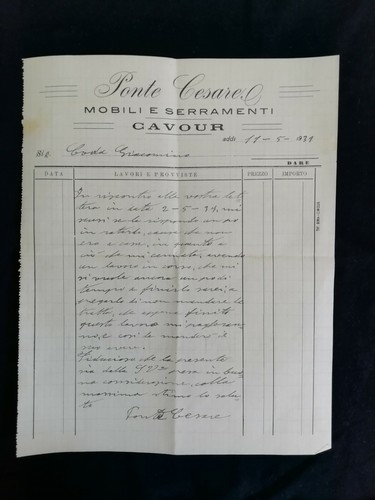 Ponte Cesare
MOBILI E SERRAMENTI
CAVOUR
addì 11-5-1931
Sig. Coda Giacomino
DARE
DATA LAVORI E PROVVISTE PREZZO IMPORTO
In riscontro alla vostra let
tera in data 2-5-31, mi
scusi se le rispondo un po
in ritardo, causa che non
ero a casa, in quanto a
ciò che mi cennate, avendo
un lavoro in corso, che mi
si vuole ancora un po di
tempo a finirlo sarei a
pregarlo di non mandare la
tratta, che appena finito
questo lavoro mi pagheran
no, e così le manderò il
mio avere.
Fiducioso che la presente
sia dalla S.V. presa in buo
na considerazione, colla
massima stima lo salu
to
Ponte Cesare